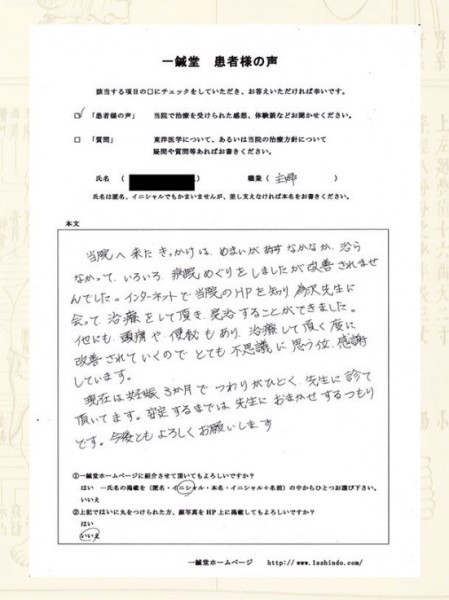 一鍼堂 患者様の声
該当する項目の□にチェックをしていただき、お答えいただければ幸いです。
□ 「患者様の声」 当院で治療を受けられた感想、体験談などお聞かせください。
□ 「質問」 東洋医学について、あるいは当院の治療方針について
疑問や質問等あればお書きください。
氏名 ( ) 職業 ( 主婦 )
氏名は匿名、イニシャルでもかまいませんが、差し支えなければ本名をお書きください。
本文
当院へ来たきっかけは、めまいが なかなか、治ら
なかって、いろいろ、病院めぐりをしましたが改善されませ
んでした。インターネットで当院のHPを知り 為沢先生に
会って治療をして頂き、完治することができました。
他にも、頭痛や、便秘もあり、治療して頂く度に
改善されていくので とても不思議に思う位、感謝
しています。
現在は妊娠3か月で つわりがひどく、先生に診て
頂いてます。安定するまでは、先生におまかせするつもり
です。今後とも よろしくお願いします
①一鍼堂ホームページに紹介させて頂いてもよろしいですか？
はい →氏名の掲載を（匿名・イニシャル・本名・イニシャル＋名前）の中からひとつお選び下さい。
いいえ
②上記ではいに丸をつけられた方、顔写真をHP上に掲載してもよろしいですか？
はい
いいえ
一鍼堂ホームページ http://www.1sshindo.com/